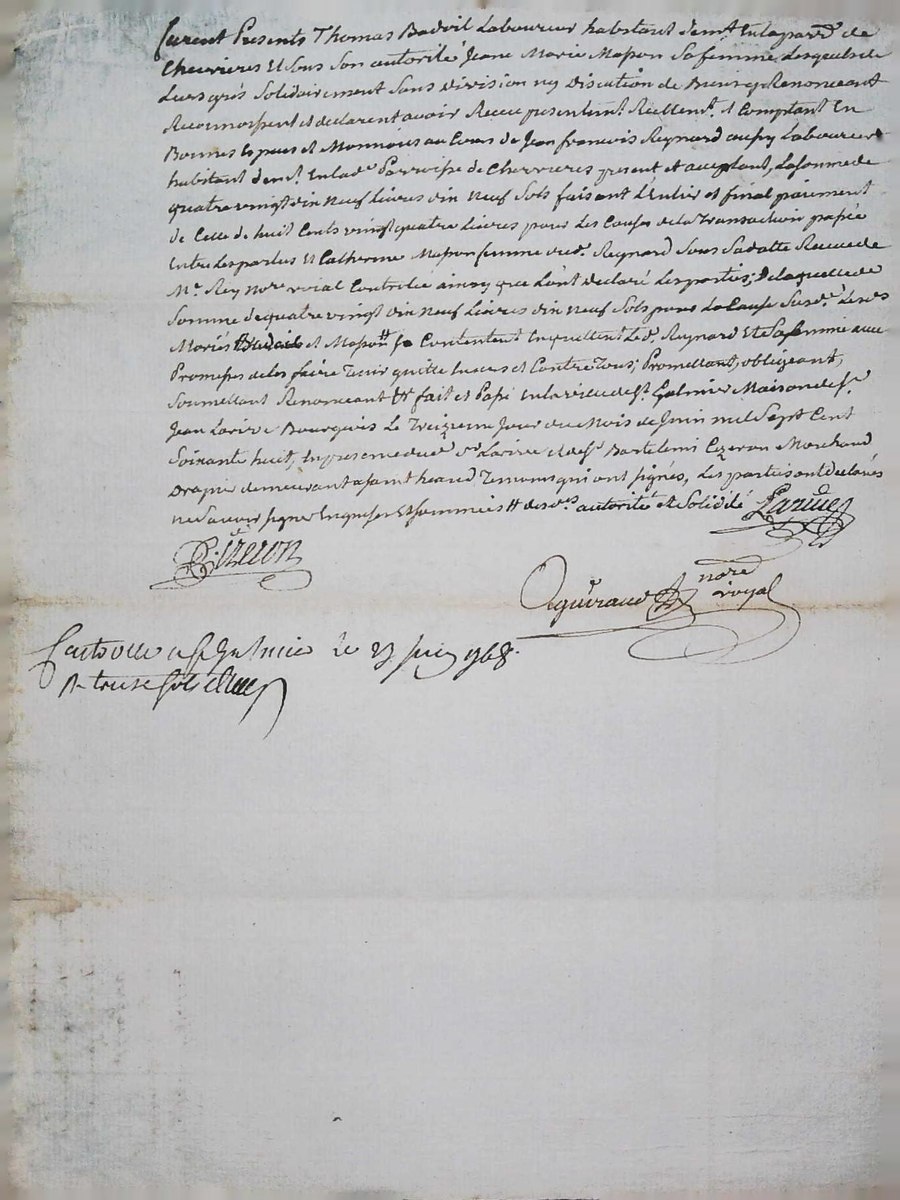 furent Presents Thomas Badoil Laboureur habitant dem.t En la parr.e de
Chevrieres Et Sous Son autorité Jeane Marie Masson Sa femme Lesquels de
Leurs grés Solidairement Sans division ny Discution de Biens y Renonceant
Reconnoissent et declarent avoir Receu presentem.t Reellem.t et Comptant En
Bonnes Especes et Monnoies au Cours de Jean francois Reynard aussy Laboureur
habitant dem.t En lad.e Parroisse de Chevrieres present et acceptant, La somme de
quatre vingt dix Neuf Livres dix neuf Sols faisant L'entier et final paiement
de Celle de huit Cents vingt quatre Livres pour Les Causes de la Transaction passée
Entre Les parties Et Catherine Masson femme dud.t Reynard Sous Sa datte Receue de
M.e Rey No.re roial Controlée ainsy que L'ont declaré Les parties; De laquelle de
Somme de quatre vingt dix Neuf Livres dix neuf Sols pour La Cause Susd.e Lesd.s
Mariés et Masson Se Contentent En quittent Led.t Reynard Et Sa femme avec
Promesses de les faire Tenir quitte Envers et Contre Tous; Promettant, obligeant,
Soumettant Renonceant &.a fait et Passé En la ville de S.t Galmier Maison de S.r
Jean Larive Bourgeois Le Treizieme Jour du Mois de Juin mil Sept Cent
Soixante huit, En presence dud.t S.r Larive et de S.r Bartelemi Cizeron Marchand
Drapier demeurant a saint heand Temoins qui ont signés, Les parties ont declarés
ne Scavoir signer Enquises Et Sommées desd.s autorité et Solidité Larive
B. Cizeron
no.re
royal
Controllé a S.t Galmier le 23 Juin 1768.
R. treize sols